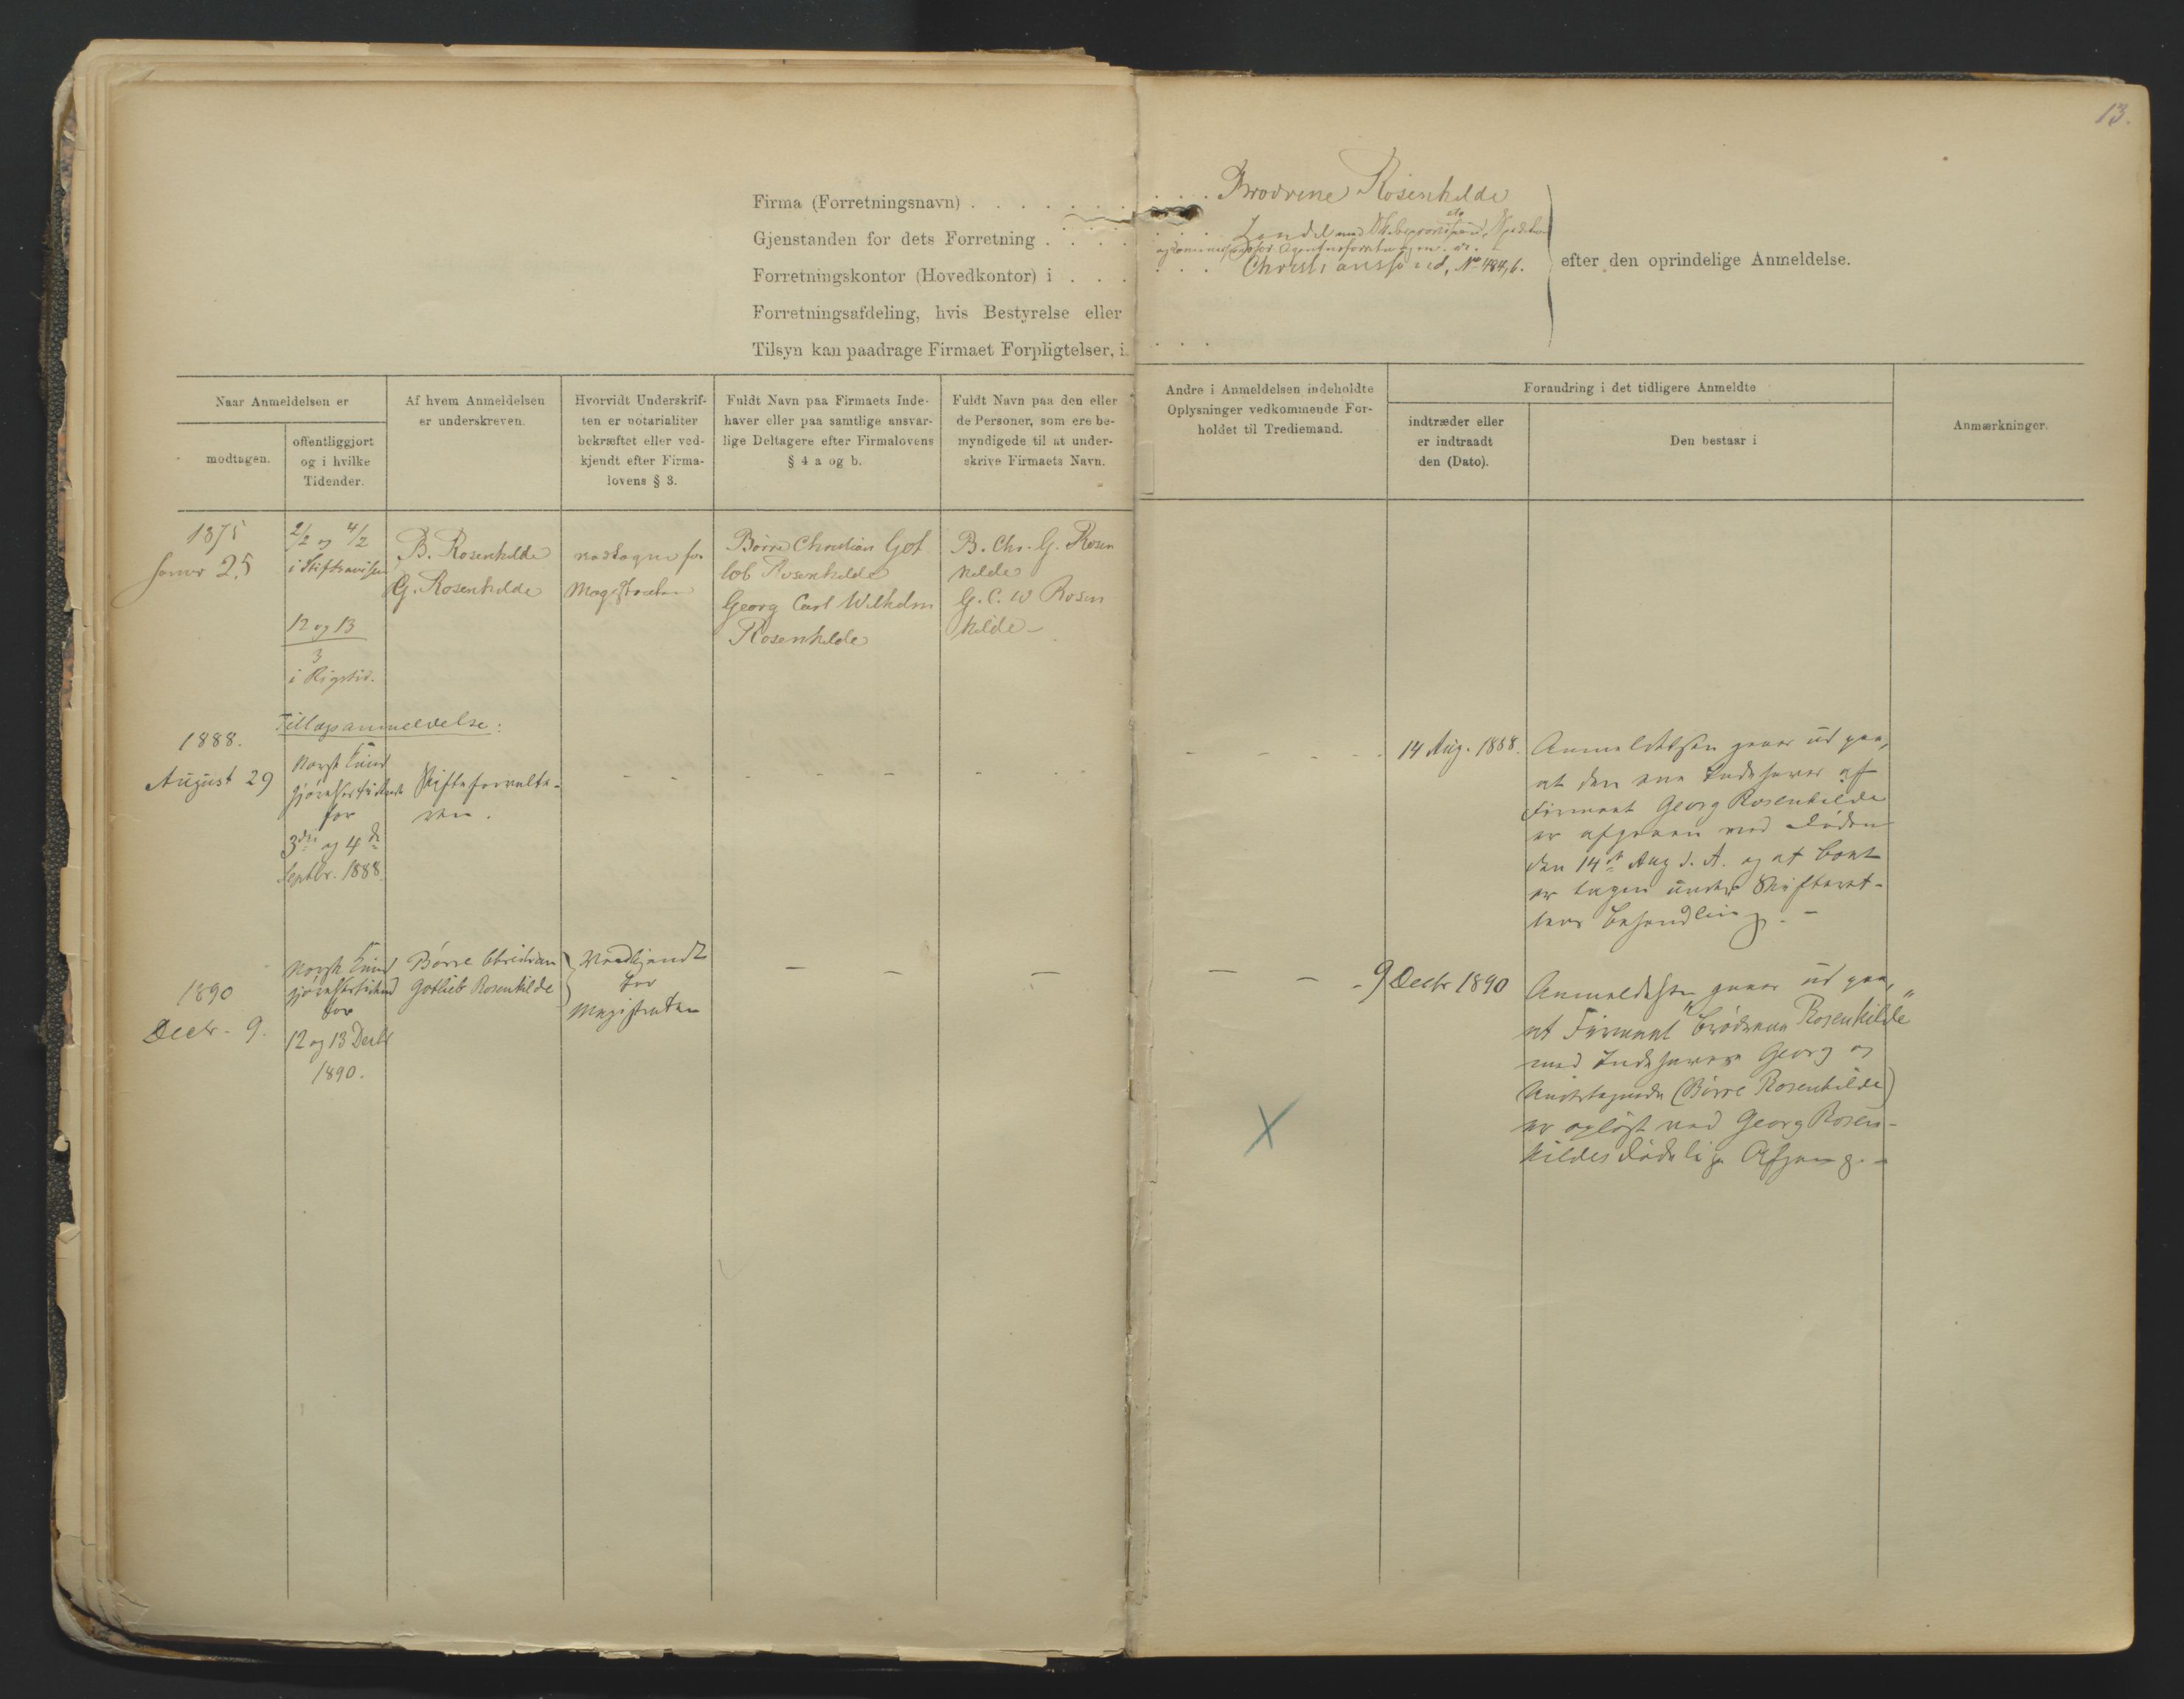 13.
Firma (Forretningsnavn) . . . . . . . . . . Brødrene Rosenkilde
Gjenstanden for dets Forretning . . . . . . . Handel med Skibsproviant, Spedition
Forretningskontor (Hovedkontor) i . . . . . . Christianssund, No 484, b.
Forretningsafdeling, hvis Bestyrelse eller
Tilsyn kan paadrage Firmaet Forpligtelser, i . . .
efter den oprindelige Anmeldelse.
Naar Anmeldelsen er
modtagen.
offentliggjort
og i hvilke
Tidender.
Af hvem Anmeldelsen
er underskreven.
Hvorvidt Underskrif-
ten er notarialiter
bekræftet eller ved-
kjendt efter Firma-
lovens § 3.
Fuldt Navn paa Firmaets Inde-
haver eller paa samtlige ansvar-
lige Deltagere efter Firmalovens
§ 4 a og b.
Fuldt Navn paa den eller
de Personer, som ere be-
myndigede til at under-
skrive Firmaets Navn.
Andre i Anmeldelsen indeholdte
Oplysninger vedkommende For-
holdet til Trediemand.
Forandring i det tidligere Anmeldte
indtræder eller
er indtraadt
den (Dato).
Den bestaar i
Anmærkninger.
1875
Januar 25
2/2 og 4/2
i Stiftsavisen
12 og 13
3
i Rigstid.
B. Rosenkilde
G. Rosenkilde
vedtagne for
Magistraten
Børre Christian Got
lob Rosenkilde
Georg Carl Wilhelm
Rosenkilde
B. Chr. G. Rosen
kilde
G. C. W Rosen
kilde –
Tillægsanmeldelse:
1888.
August 29
Norsk Kund
gjørelsestidende
for
3die og 4de
Septbr. 1888.
Skifteforvalte-
ren.
14 Aug. 1888.
Anmeldelsen gaar ud paa,
at den ene Indehaver af
Firmaet Georg Rosenkilde
er afgaaen ved Døden
den 14de Aug d. A. og at Boet
er tagen under Skifteret-
tens Behandling. –
1890
Decbr. 9.
Norsk Kund
gjørelsestidend
for
12 og 13 Decbr
1890.
Børre Christian
Gotlieb Rosenkilde
Vedkjendt
for
Magistraten
9 Decbr 1890
Anmeldelsen gaar ud paa,
at Firmaet "Brødrene Rosenkilde"
med Indehavere Georg og
Undertegnede (Børre Rosenkilde)
er opløst ved Georg Rosen-
kildes dødelige Afgang. –